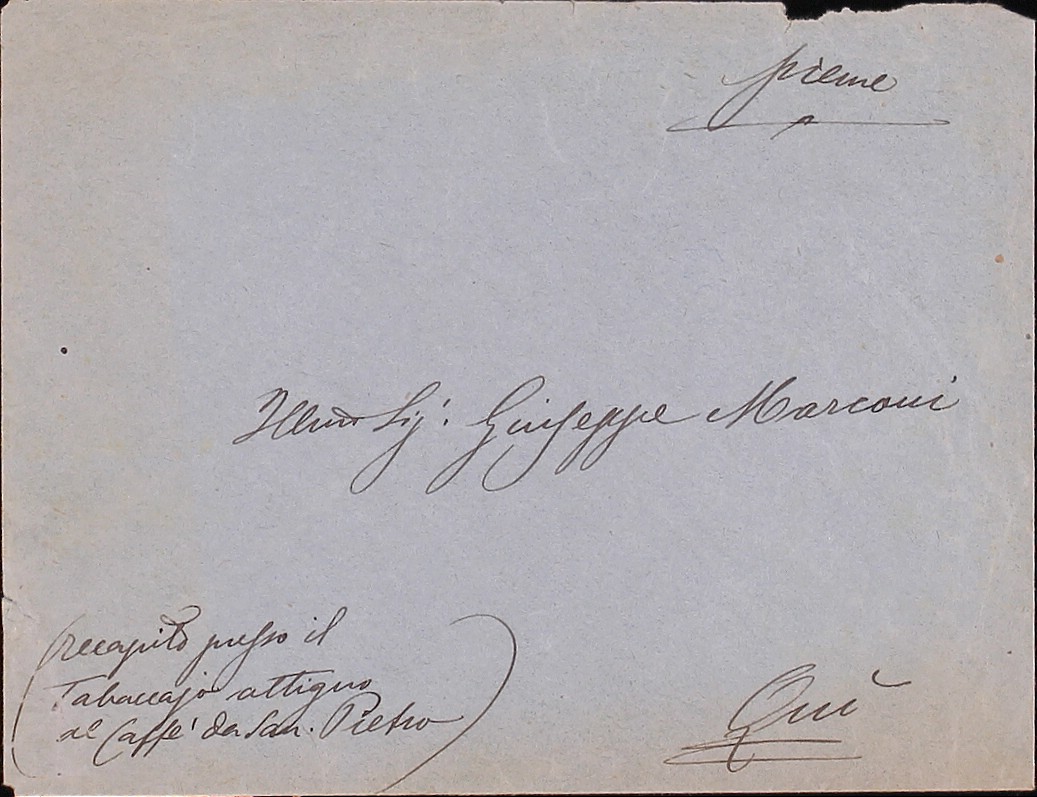 preme
Illmo Sig: Giuseppe Marconi
(recapito presso il
Tabaccajo attiguo
al Caffè da San. Pietro)
Qui